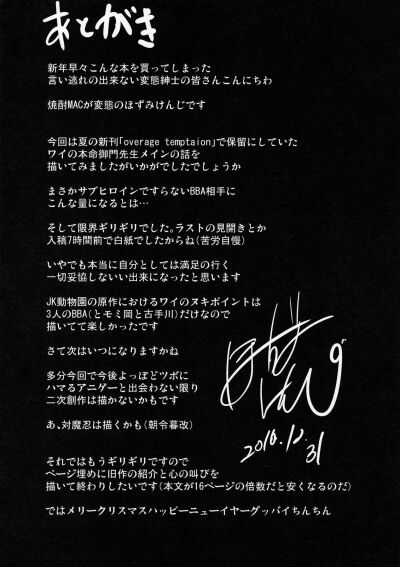 あとがき
新年早々こんな本を買ってしまった
言い逃れの出来ない変態紳士の皆さんこんにちわ
焼酎MACが変態のほずみけんじです
今回は夏の新刊｢overage temptaion｣で保留にしていた
ワイの本命御門先生メインの話を
描いてみましたがいかがでしたでしょうか
まさかサブヒロインですらないBBA相手に
こんな量になるとは…
そして限界ギリギリでした。ラストの見開きとか
入稿7時間前で白紙でしたからね(苦労自慢)
いやでも本当に自分としては満足の行く
一切妥協しないいい出来になったと思います
JK動物園の原作におけるワイのヌキポイントは
3人のBBA(とモミ岡と古手川)だけなので
描いてて楽しかったです
さて次はいつになりますかね
多分今回で今後よっぽどツボに
ハマるアニゲーと出会わない限り
二次創作は描かないかもです
あ、対魔忍は描くかも(朝令暮改)
それではもうギリギリですので
ページ埋めに旧作の紹介と心の叫びを
描いて終わりしたいです(本文が16ページの倍数だと安くなるのだ)
ではメリークリスマスハッピーニューイヤーグッバイちんちん
ほずみ
けんじ
2010.12.31